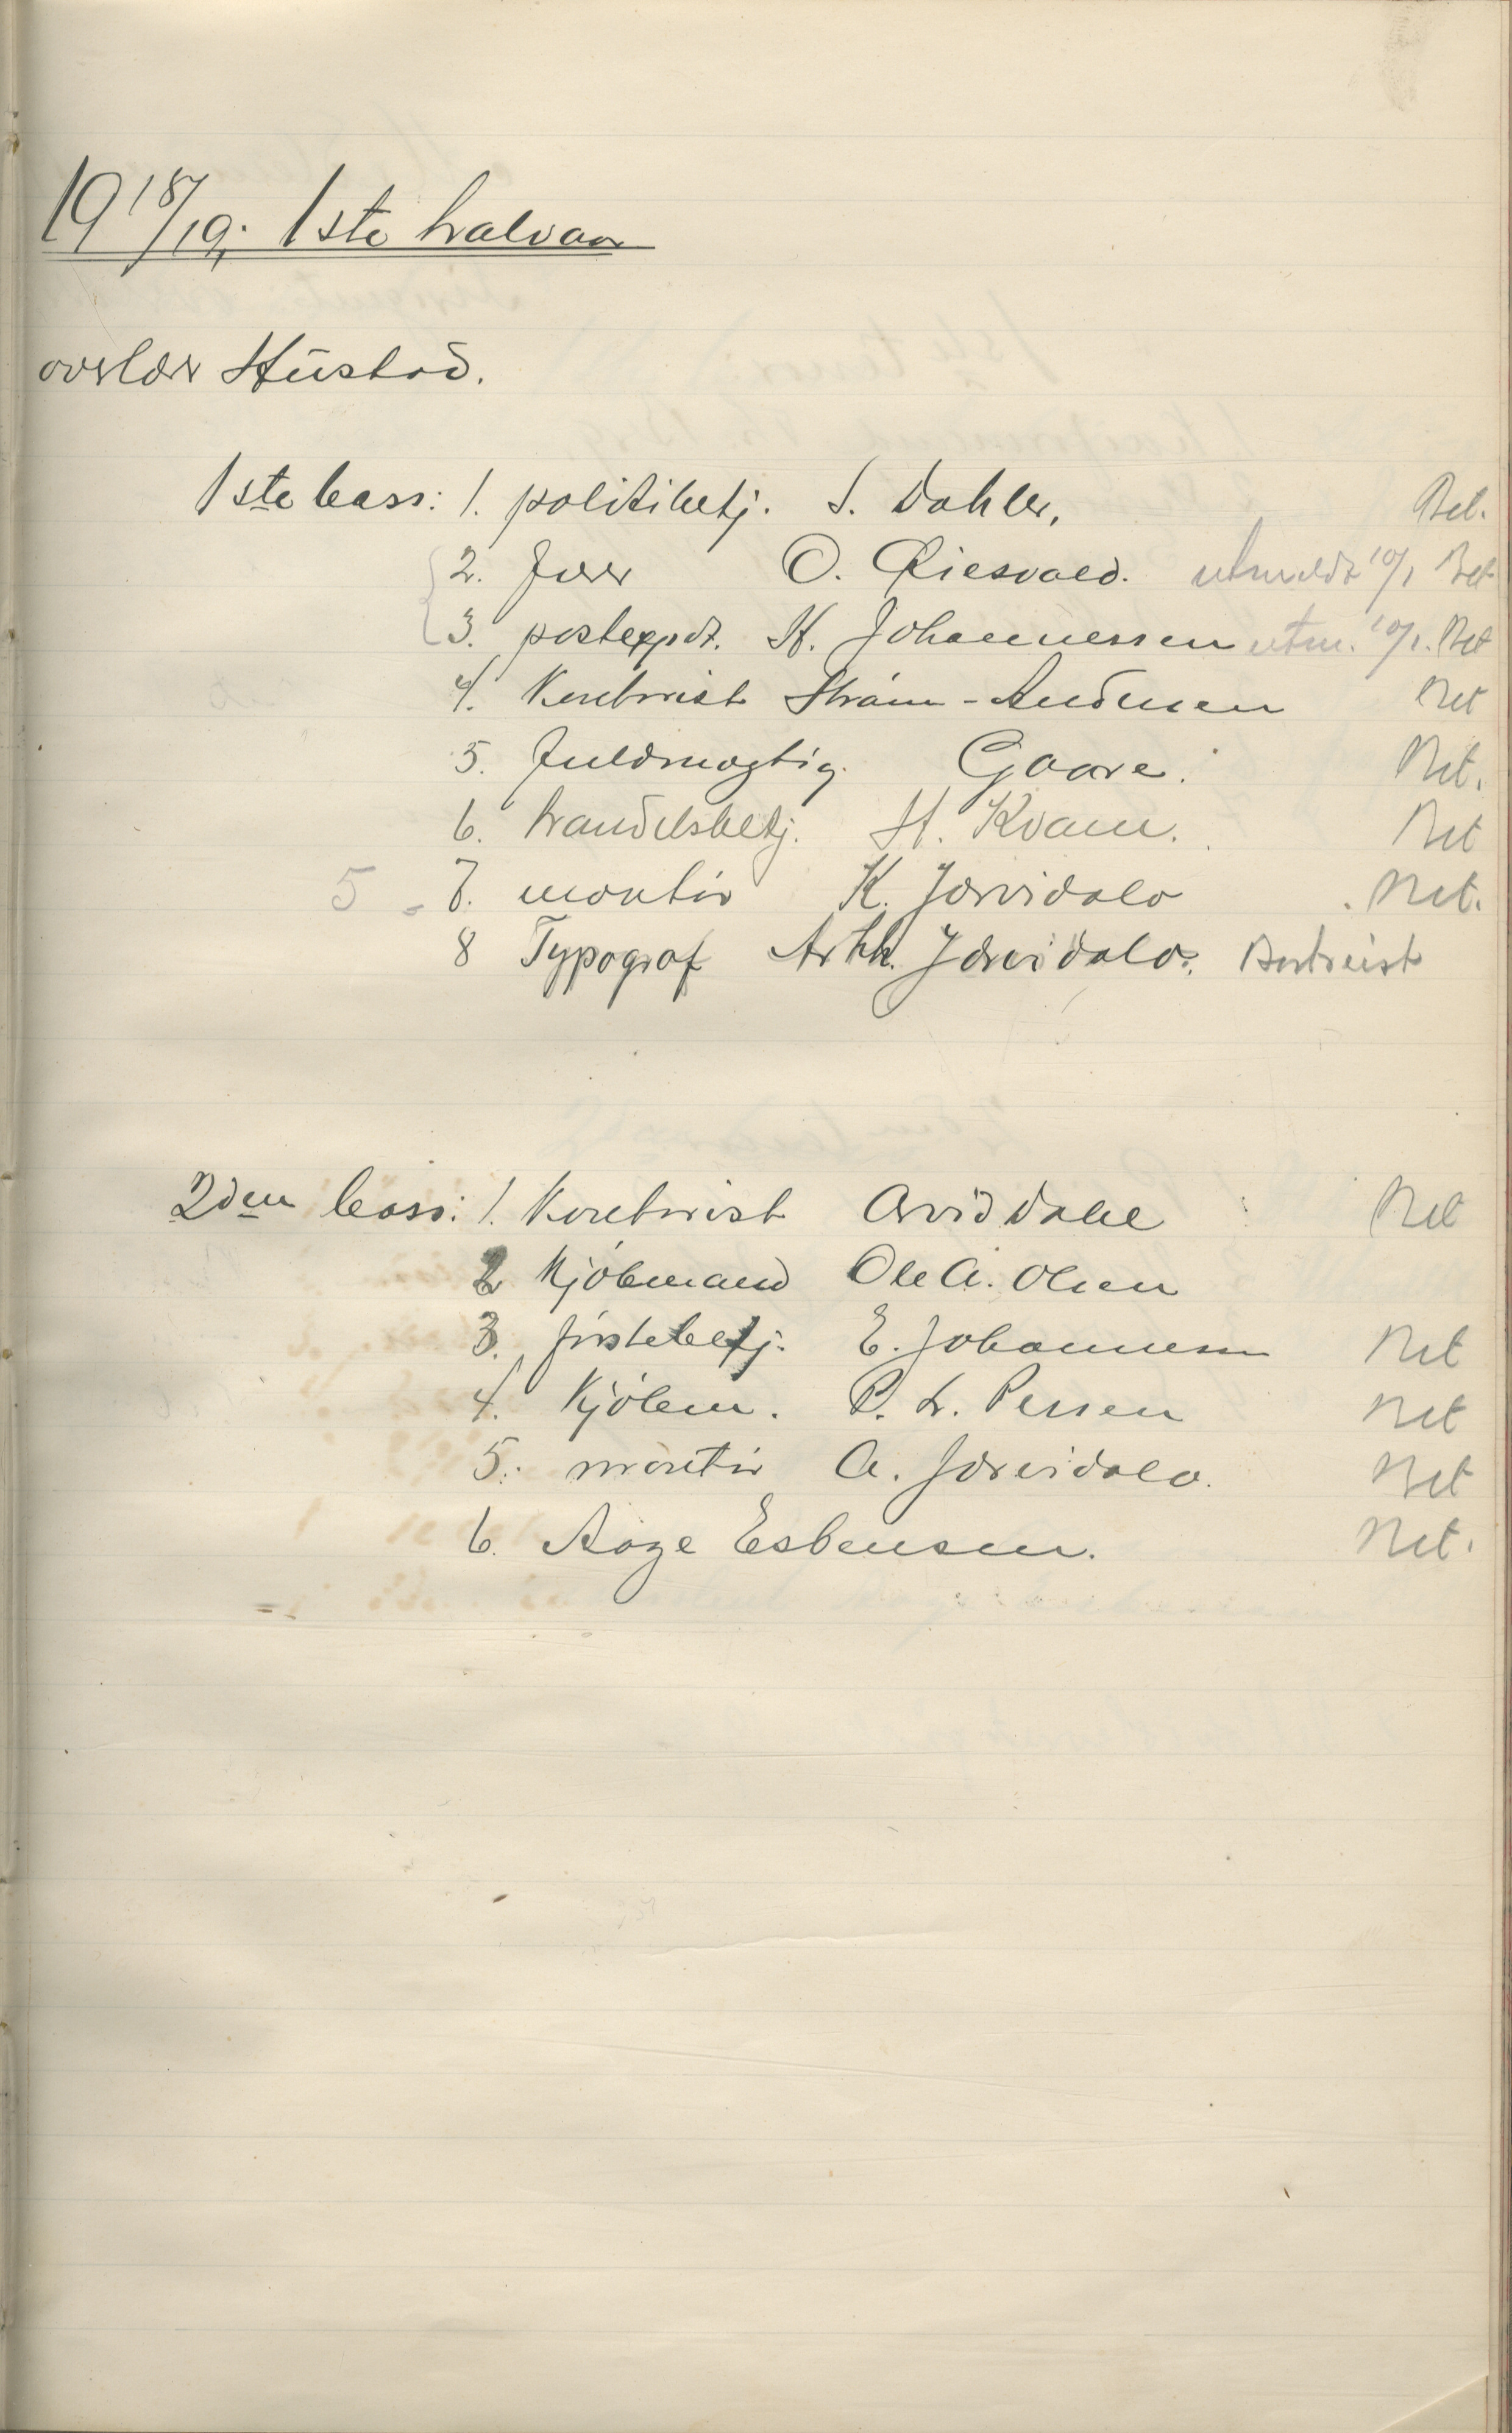 1918/19. 1ste halvaar
overlær Hustad.
1ste bass: 1. politibetj. S. Dahler, Bet.
2. Lærer O. Riesvold. utmeldt 10/1 Bet
3. postexpdt. H. Johannessen utm. 10/1. Bet
4. Kontorist Strøm-Andersen Bet
5. Fuldmægtig Gaare. Bet.
6. handelsbetj. H. Kvam. Bet
5 - 7. montør K. Jærvidalo Bet.
8 Typograf Arth. Jærvidalo. Bortreist
2den bass: 1. Kontorist Arvid Dahl Bet
2 Kjøbmand Ole A. Olsen
3. førstebetj. E. Johannesen Bet
4. Kjøbm. P. L. Persen Bet
5. montør A. Jærvidalo. Bet
6. Aage Esbensen. Bet.